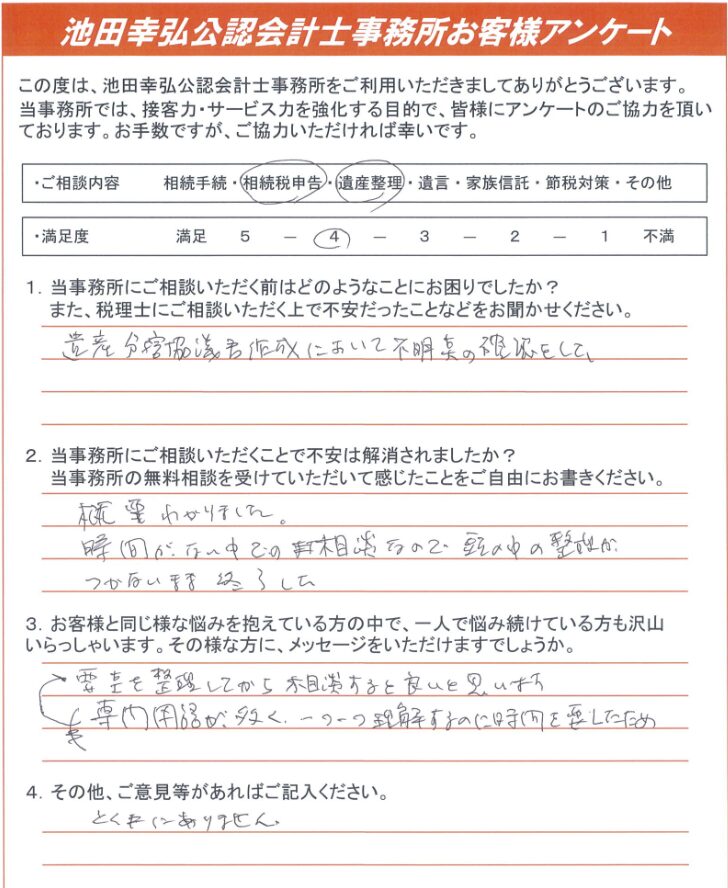 池田幸弘公認会計士事務所お客様アンケート
この度は、池田幸弘公認会計士事務所をご利用いただきましてありがとうございます。
当事務所では、接客力・サービス力を強化する目的で、皆様にアンケートのご協力を頂い
ております。お手数ですが、ご協力いただければ幸いです。
・ご相談内容 相続手続・相続税申告・遺産整理・遺言・家族信託・節税対策・その他
・満足度 満足 5 － 4 － 3 － 2 － 1 不満
1. 当事務所にご相談いただく前はどのようなことにお困りでしたか？
また、税理士にご相談いただく上で不安だったことなどをお聞かせください。
遺産分割協議書作成において不明点の確認をした
2. 当事務所にご相談いただくことで不安は解消されましたか？
当事務所の無料相談を受けていただいて感じたことをご自由にお書きください。
概要わかりました。
時間がない中での相談なので頭の中の整理が
つかないまま終了した
3. お客様と同じ様な悩みを抱えている方の中で、一人で悩み続けている方も沢山
いらっしゃいます。その様な方に、メッセージをいただけますでしょうか。
要点を整理してから相談すると良いと思います
専門用語が多く、一つ一つ理解するのに時間を要したため
4. その他、ご意見等があればご記入ください。
とくにありません。